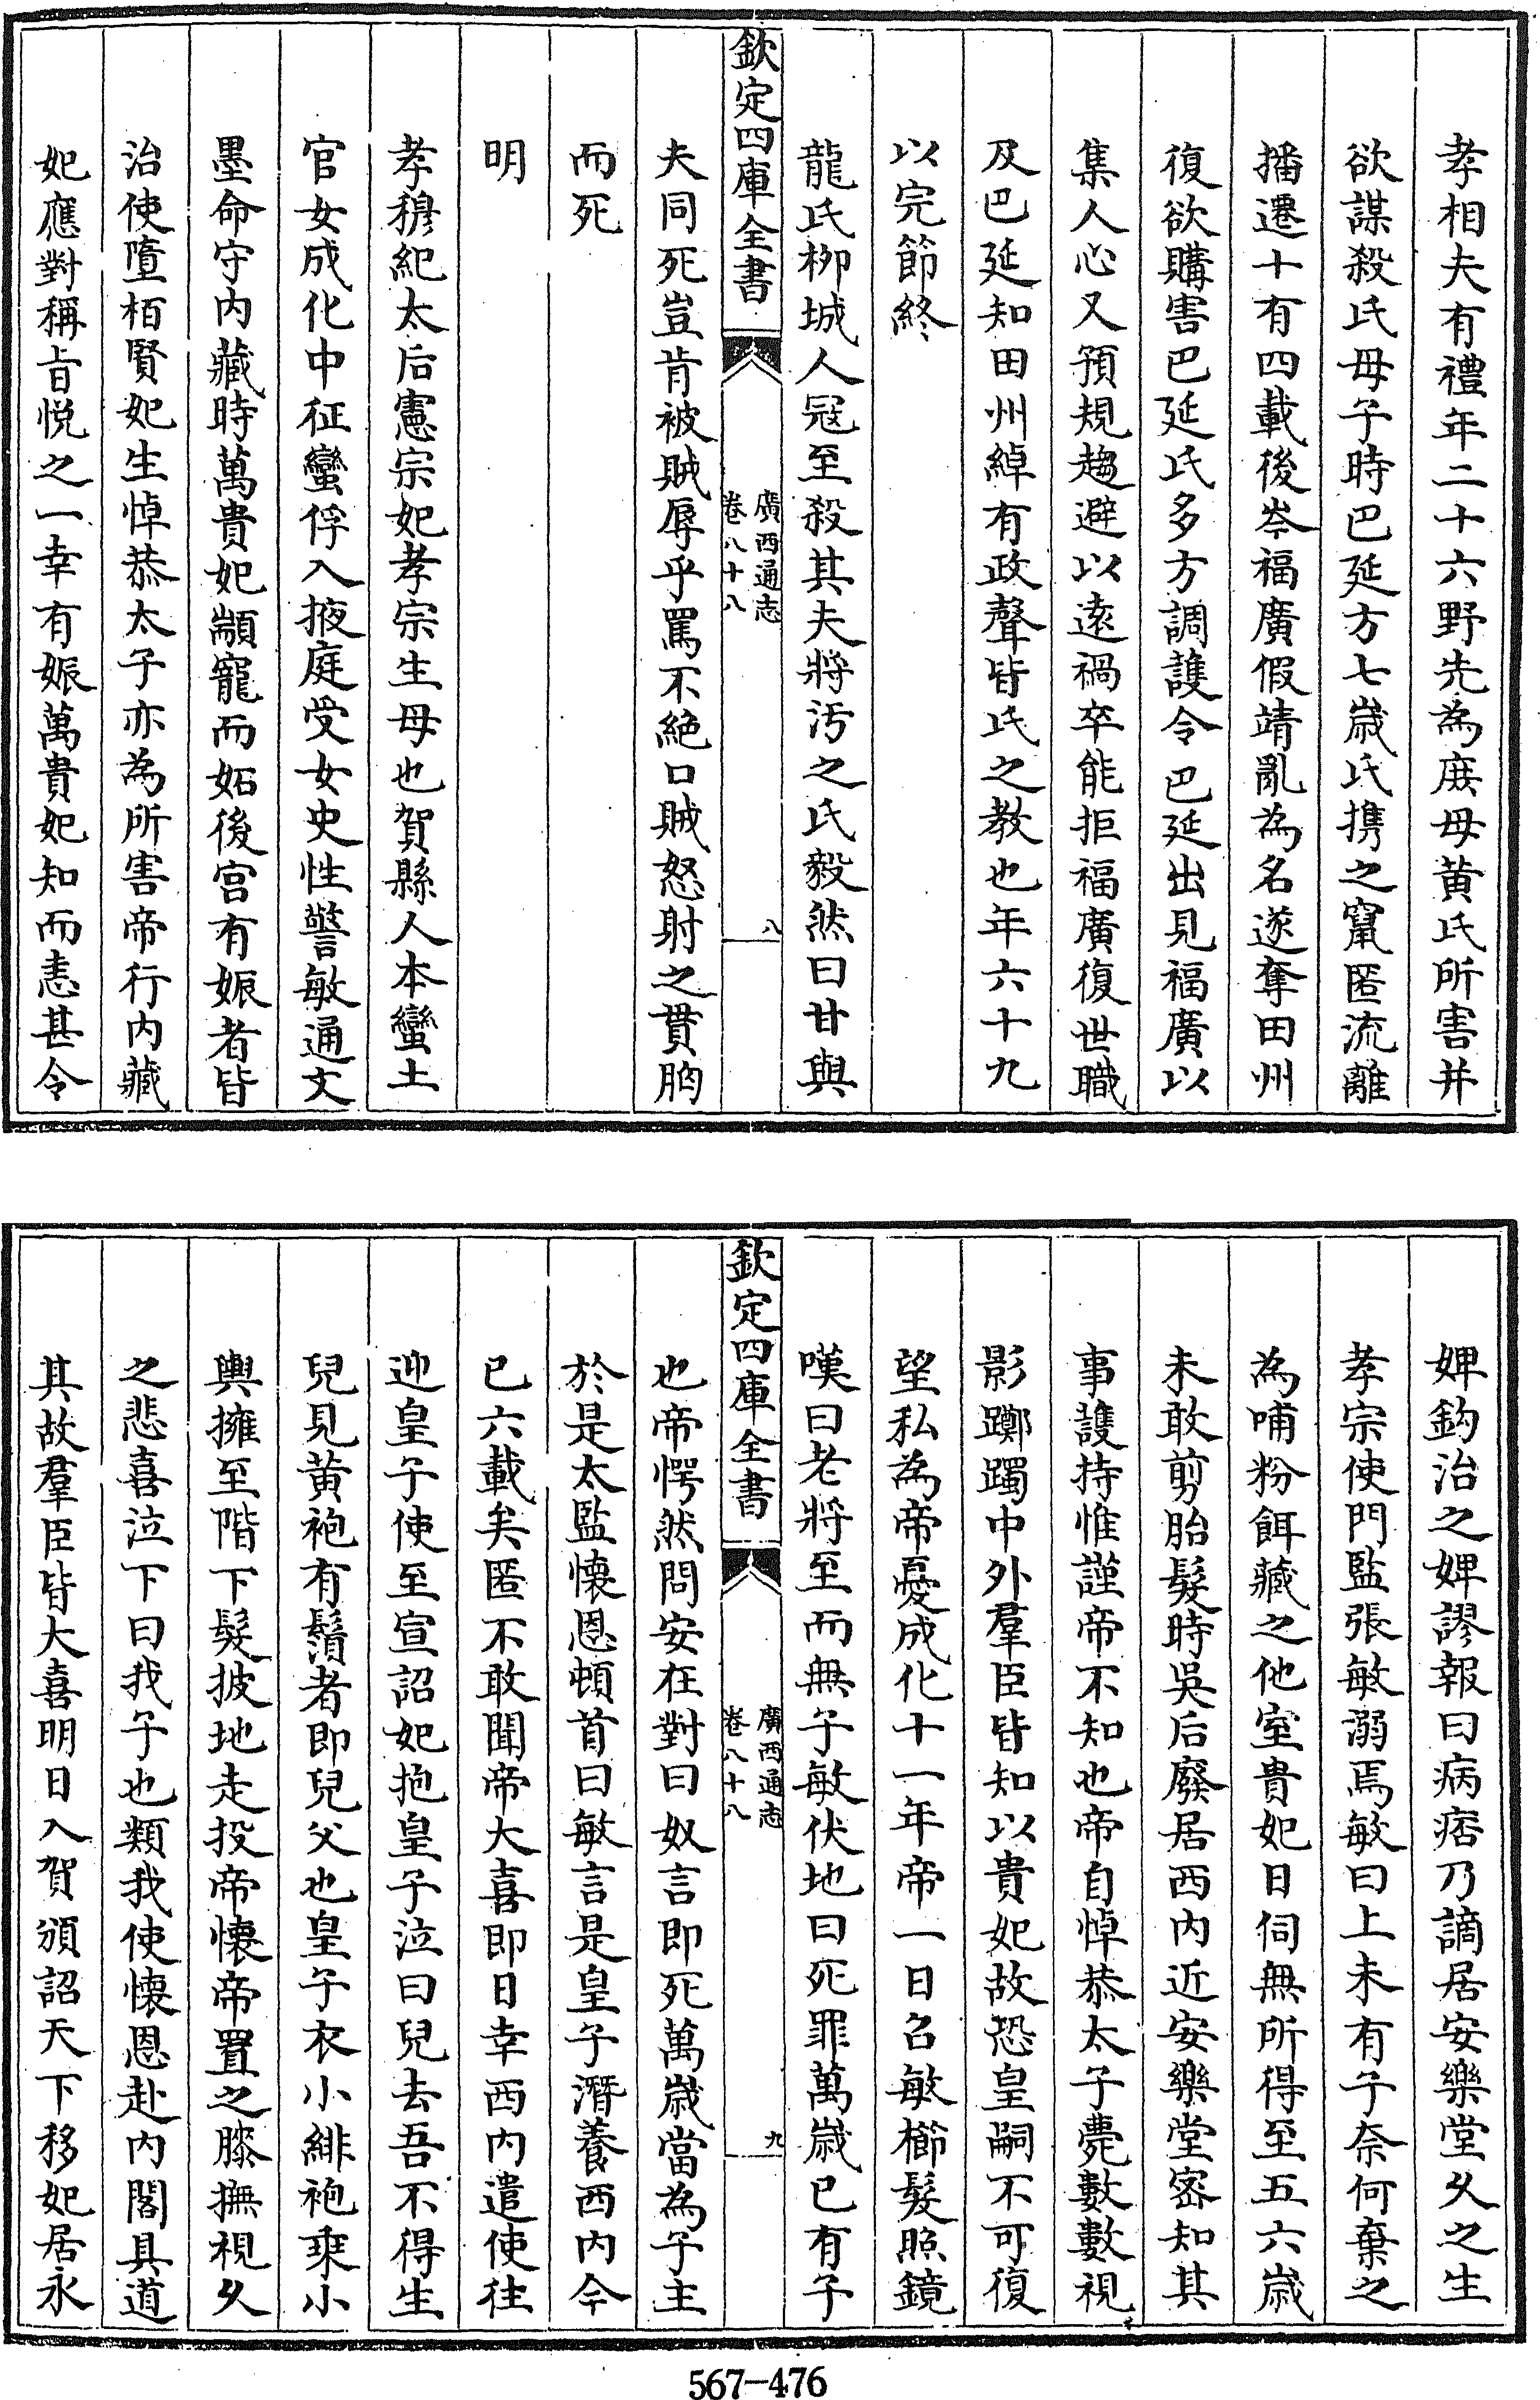 孝相夫有禮年二十六野先為庶母黄氏所害并
欲謀殺氏母子時巴延方七歲氏携之竄匿流離
播遷十有四載後岑福廣假靖亂為名遂奪田州
復欲購害巴延氏多方調䕶令巴延出見福廣以
集人心又預規趨避以遠禍卒能拒福廣復世職
及巴延知田州綽有政聲皆氏之教也年六十九
以完節終
龍氏柳城人冦至殺其夫將汚之氏毅然曰甘與
欽定四庫全書
廣西通志
卷八十八
八
夫同死豈肯被賊辱乎罵不絶口賊怒射之貫胸
而死
明
孝穆紀太后憲宗妃孝宗生母也賀縣人本蠻土
官女成化中征蠻俘入掖庭受女史性警敏通文
墨命守内藏時萬貴妃顓寵而妬後宫有娠者皆
治使墮栢賢妃生悼恭太子亦為所害帝行内藏
妃應對稱旨悦之一幸有娠萬貴妃知而恚甚令
婢鈎治之婢謬報曰病痞乃謫居安樂堂乆之生
孝宗使門監張敏溺焉敏曰上未有子奈何棄之
為哺粉餌藏之他室貴妃日伺無所得至五六歲
未敢剪胎髮時吳后廢居西内近安樂堂宻知其
事䕶持惟謹帝不知也帝自悼恭太子薨數數視
影躑躅中外羣臣皆知以貴妃故恐皇嗣不可復
望私為帝憂成化十一年帝一日召敏櫛髮照鏡
嘆曰老將至而無子敏伏地曰死罪萬歲已有子
欽定四庫全書
廣西通志
卷八十八
九
也帝愕然問安在對曰奴言即死萬歲當為子主
於是太監懐恩頓首曰敏言是皇子潛養西内今
已六載矣匿不敢聞帝大喜即日幸西内遣使往
迎皇子使至宣詔妃抱皇子泣曰兒去吾不得生
兒見黄袍有鬚者即兒父也皇子衣小緋袍乗小
輿擁至階下髮披地走投帝懐帝置之膝撫視乆
之悲喜泣下曰我子也類我使懐恩赴内閣具道
其故羣臣皆大喜明日入賀頒詔天下移妃居永
567-476